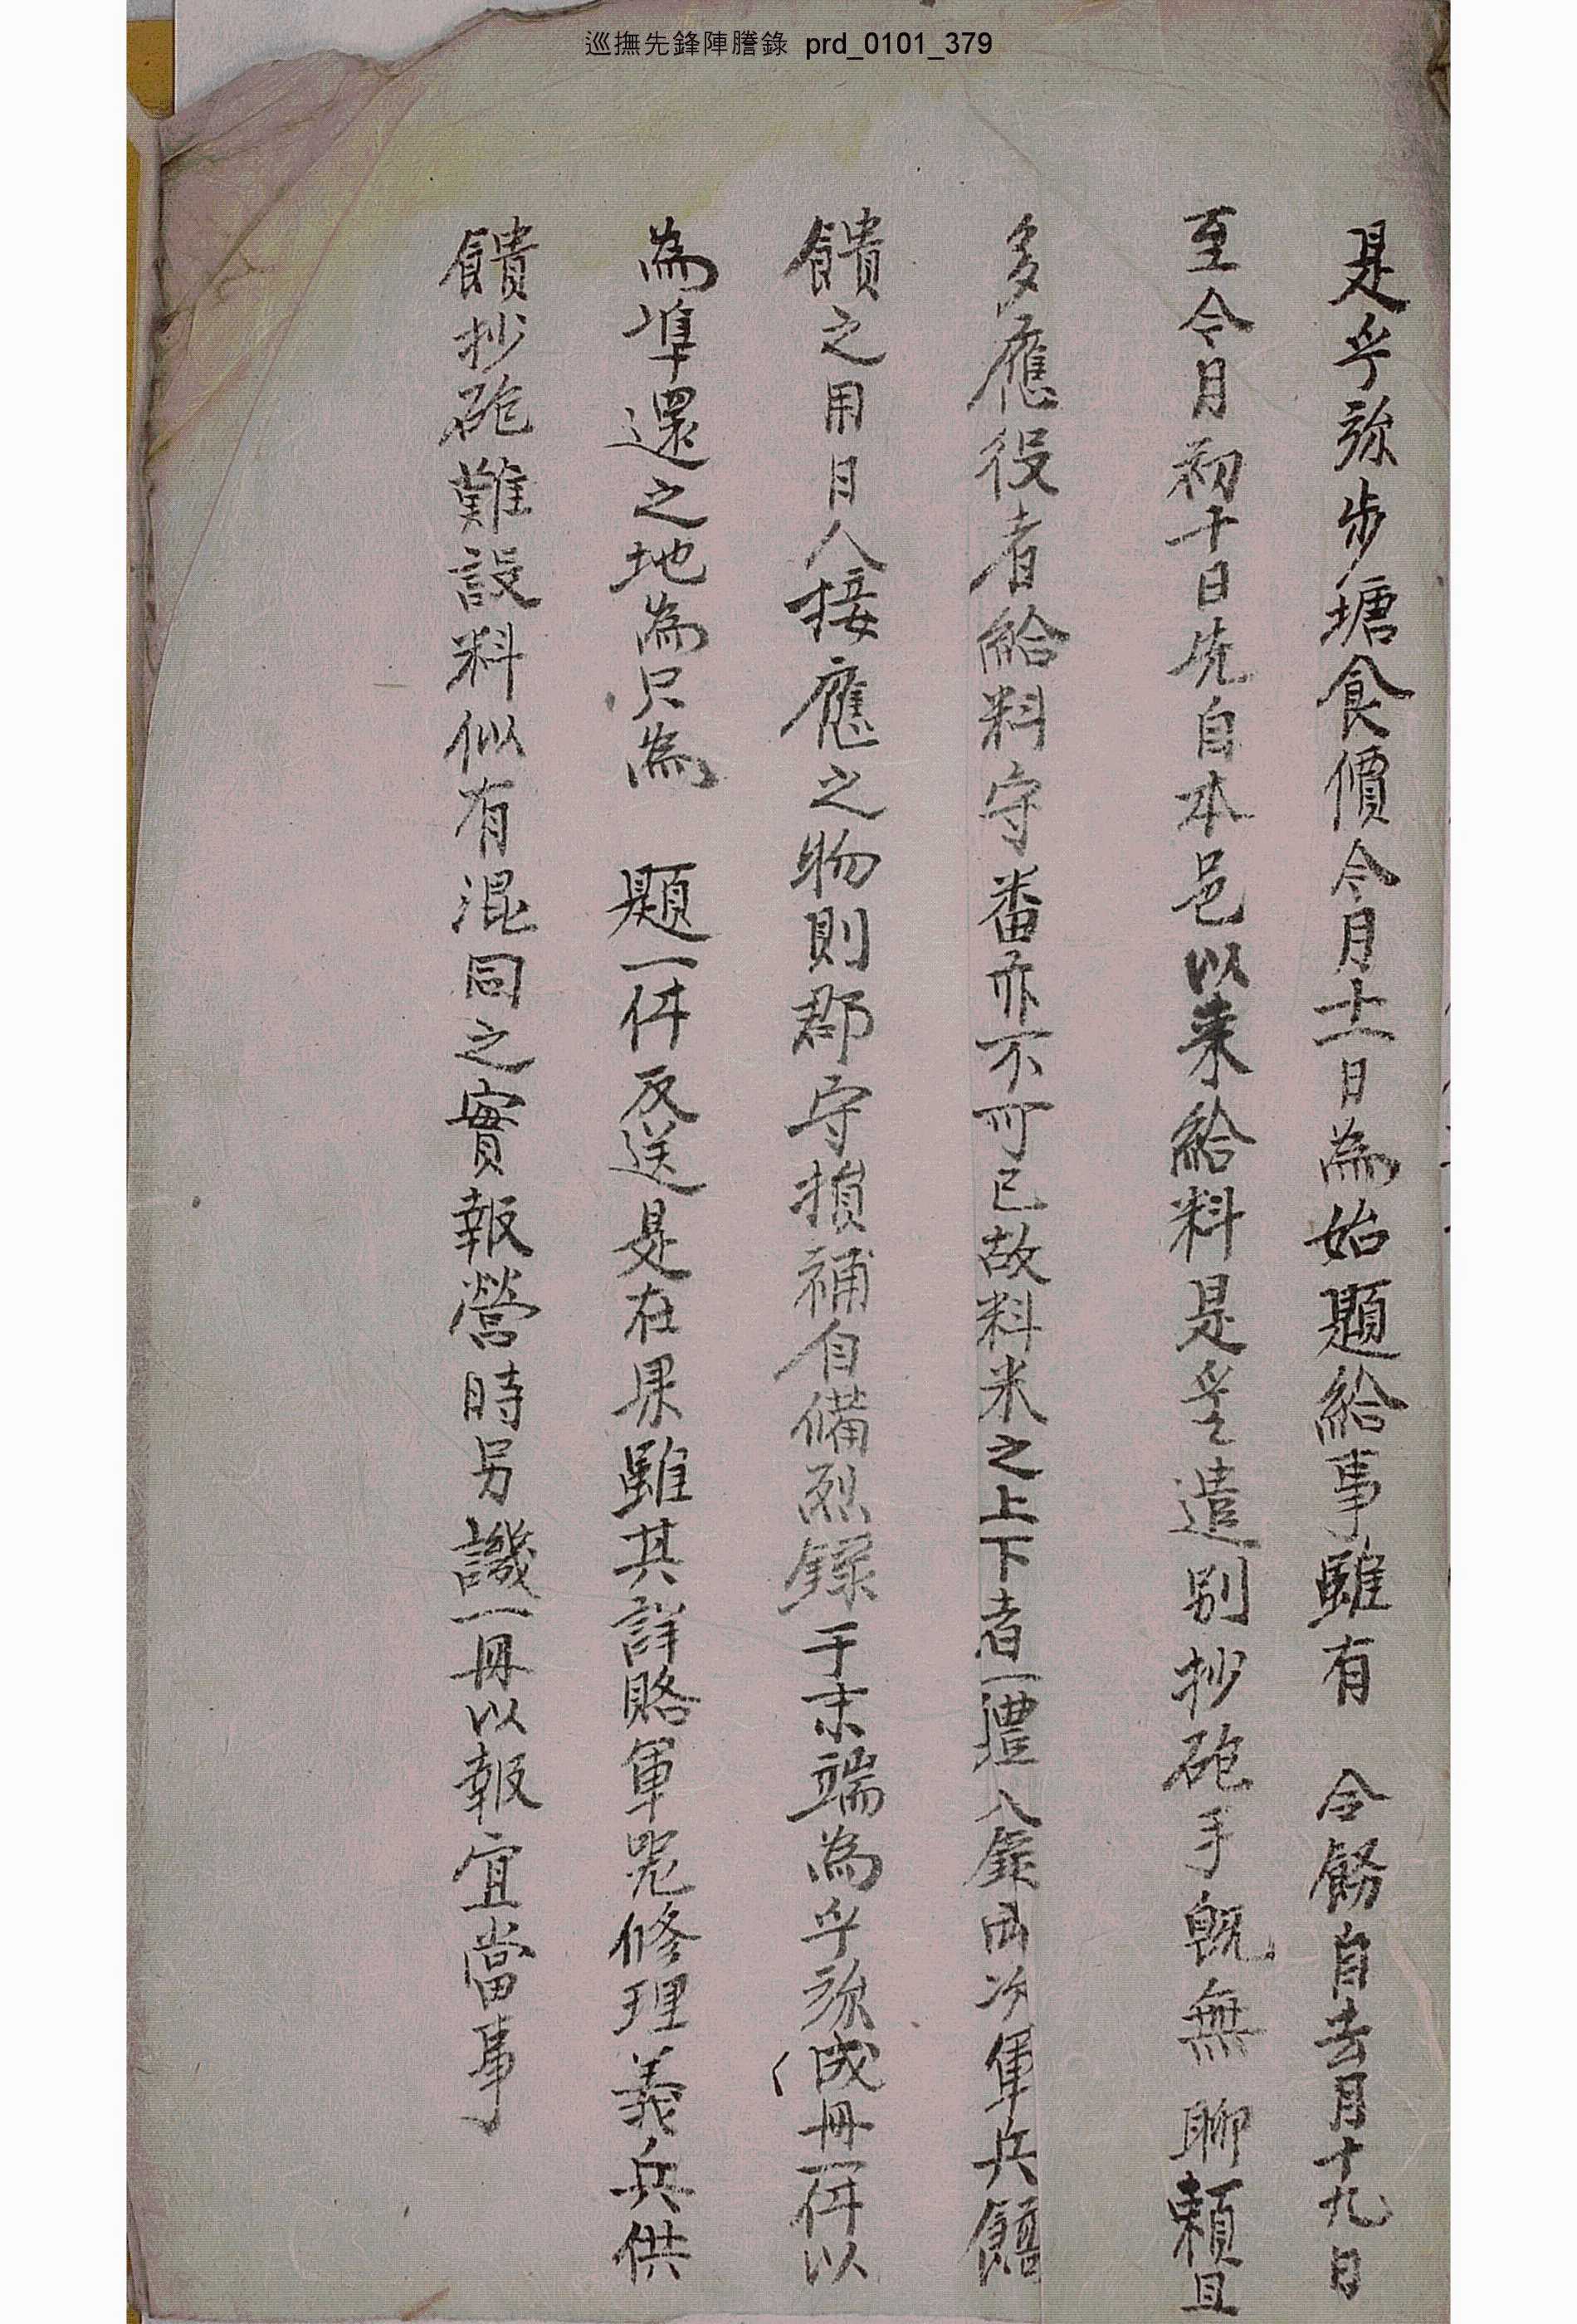 巡撫先鋒陣謄錄 prd_0101_379
是乎旀步塘食價今月十一日為始題給事雖有 令飭自去月十九日
至今月初十日先自本邑以来給料是乎乙遣別抄砲手既無聊賴且
多應役者給料守番亦不可已故料米之上下者一軆入錄四次軍兵饋
饋之用日人接應之物則郡守損補自備烈錄于末端為乎旀成冊一件以
為準還之地為只為 題一件反送是在果雖其詳略軍器修理義兵供
饋抄砲難設料似有混同之實報營時另譏一冊以報宜當事